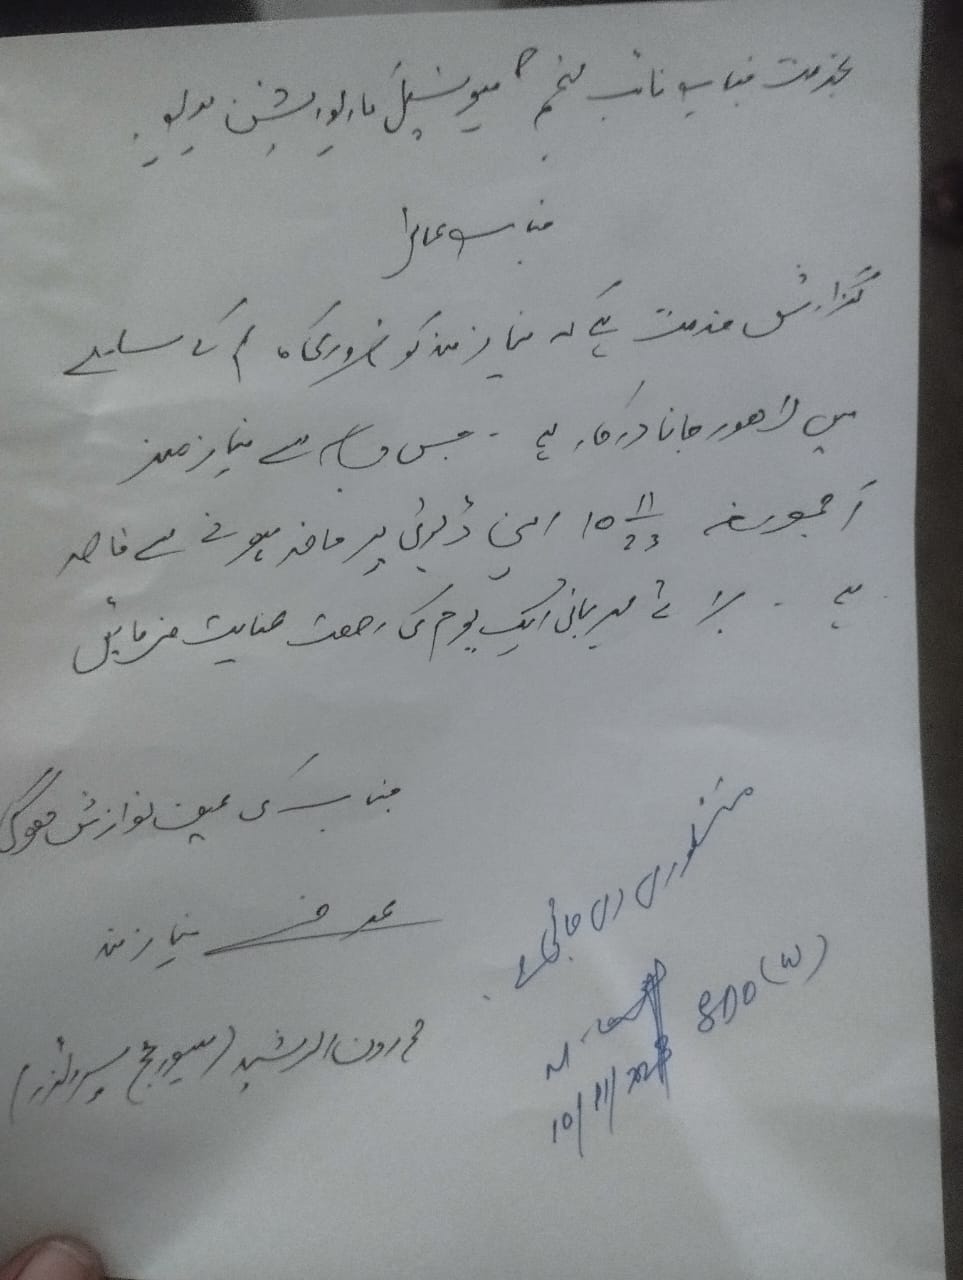 بخدمت جناب نائب مہتمم میونسپل کارپوریشن
جناب عالی!
گزارش خدمت ہے کہ نیازمند کو ضروری کام کے سلسلے
میں لاھور جانا درکار ہے ۔ جس وجہ سے نیازمند
آج مورخہ 10 11/23 اپنی ڈیوٹی پر حاضر ہونے سے قاصر
ہے ۔ برائے مہربانی ایک یوم کی رخصت عنایت فرمائیں
جناب کی عین نوازش ھوگی
عرضے نیازمند
ھارون الرشید (سیوریج سپروائزر)
منظوری دی جائے۔
SDO (W)
10/11/2023